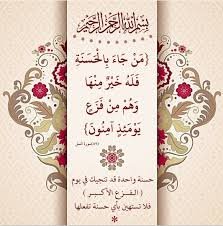 بسم الله الرحمن الرحيم
{مَن جَاءَ بِالْحَسَنَةِ
فَلَهُ خَيْرٌ مِّنْهَا
وَهُم مِّن فَزَعٍ
يَوْمَئِذٍ آمِنُونَ}
حسنة واحدة قد تنجيك في يوم
( الفـزع الأكبـر )
فلا تستهين بأي حسنة تفعلها